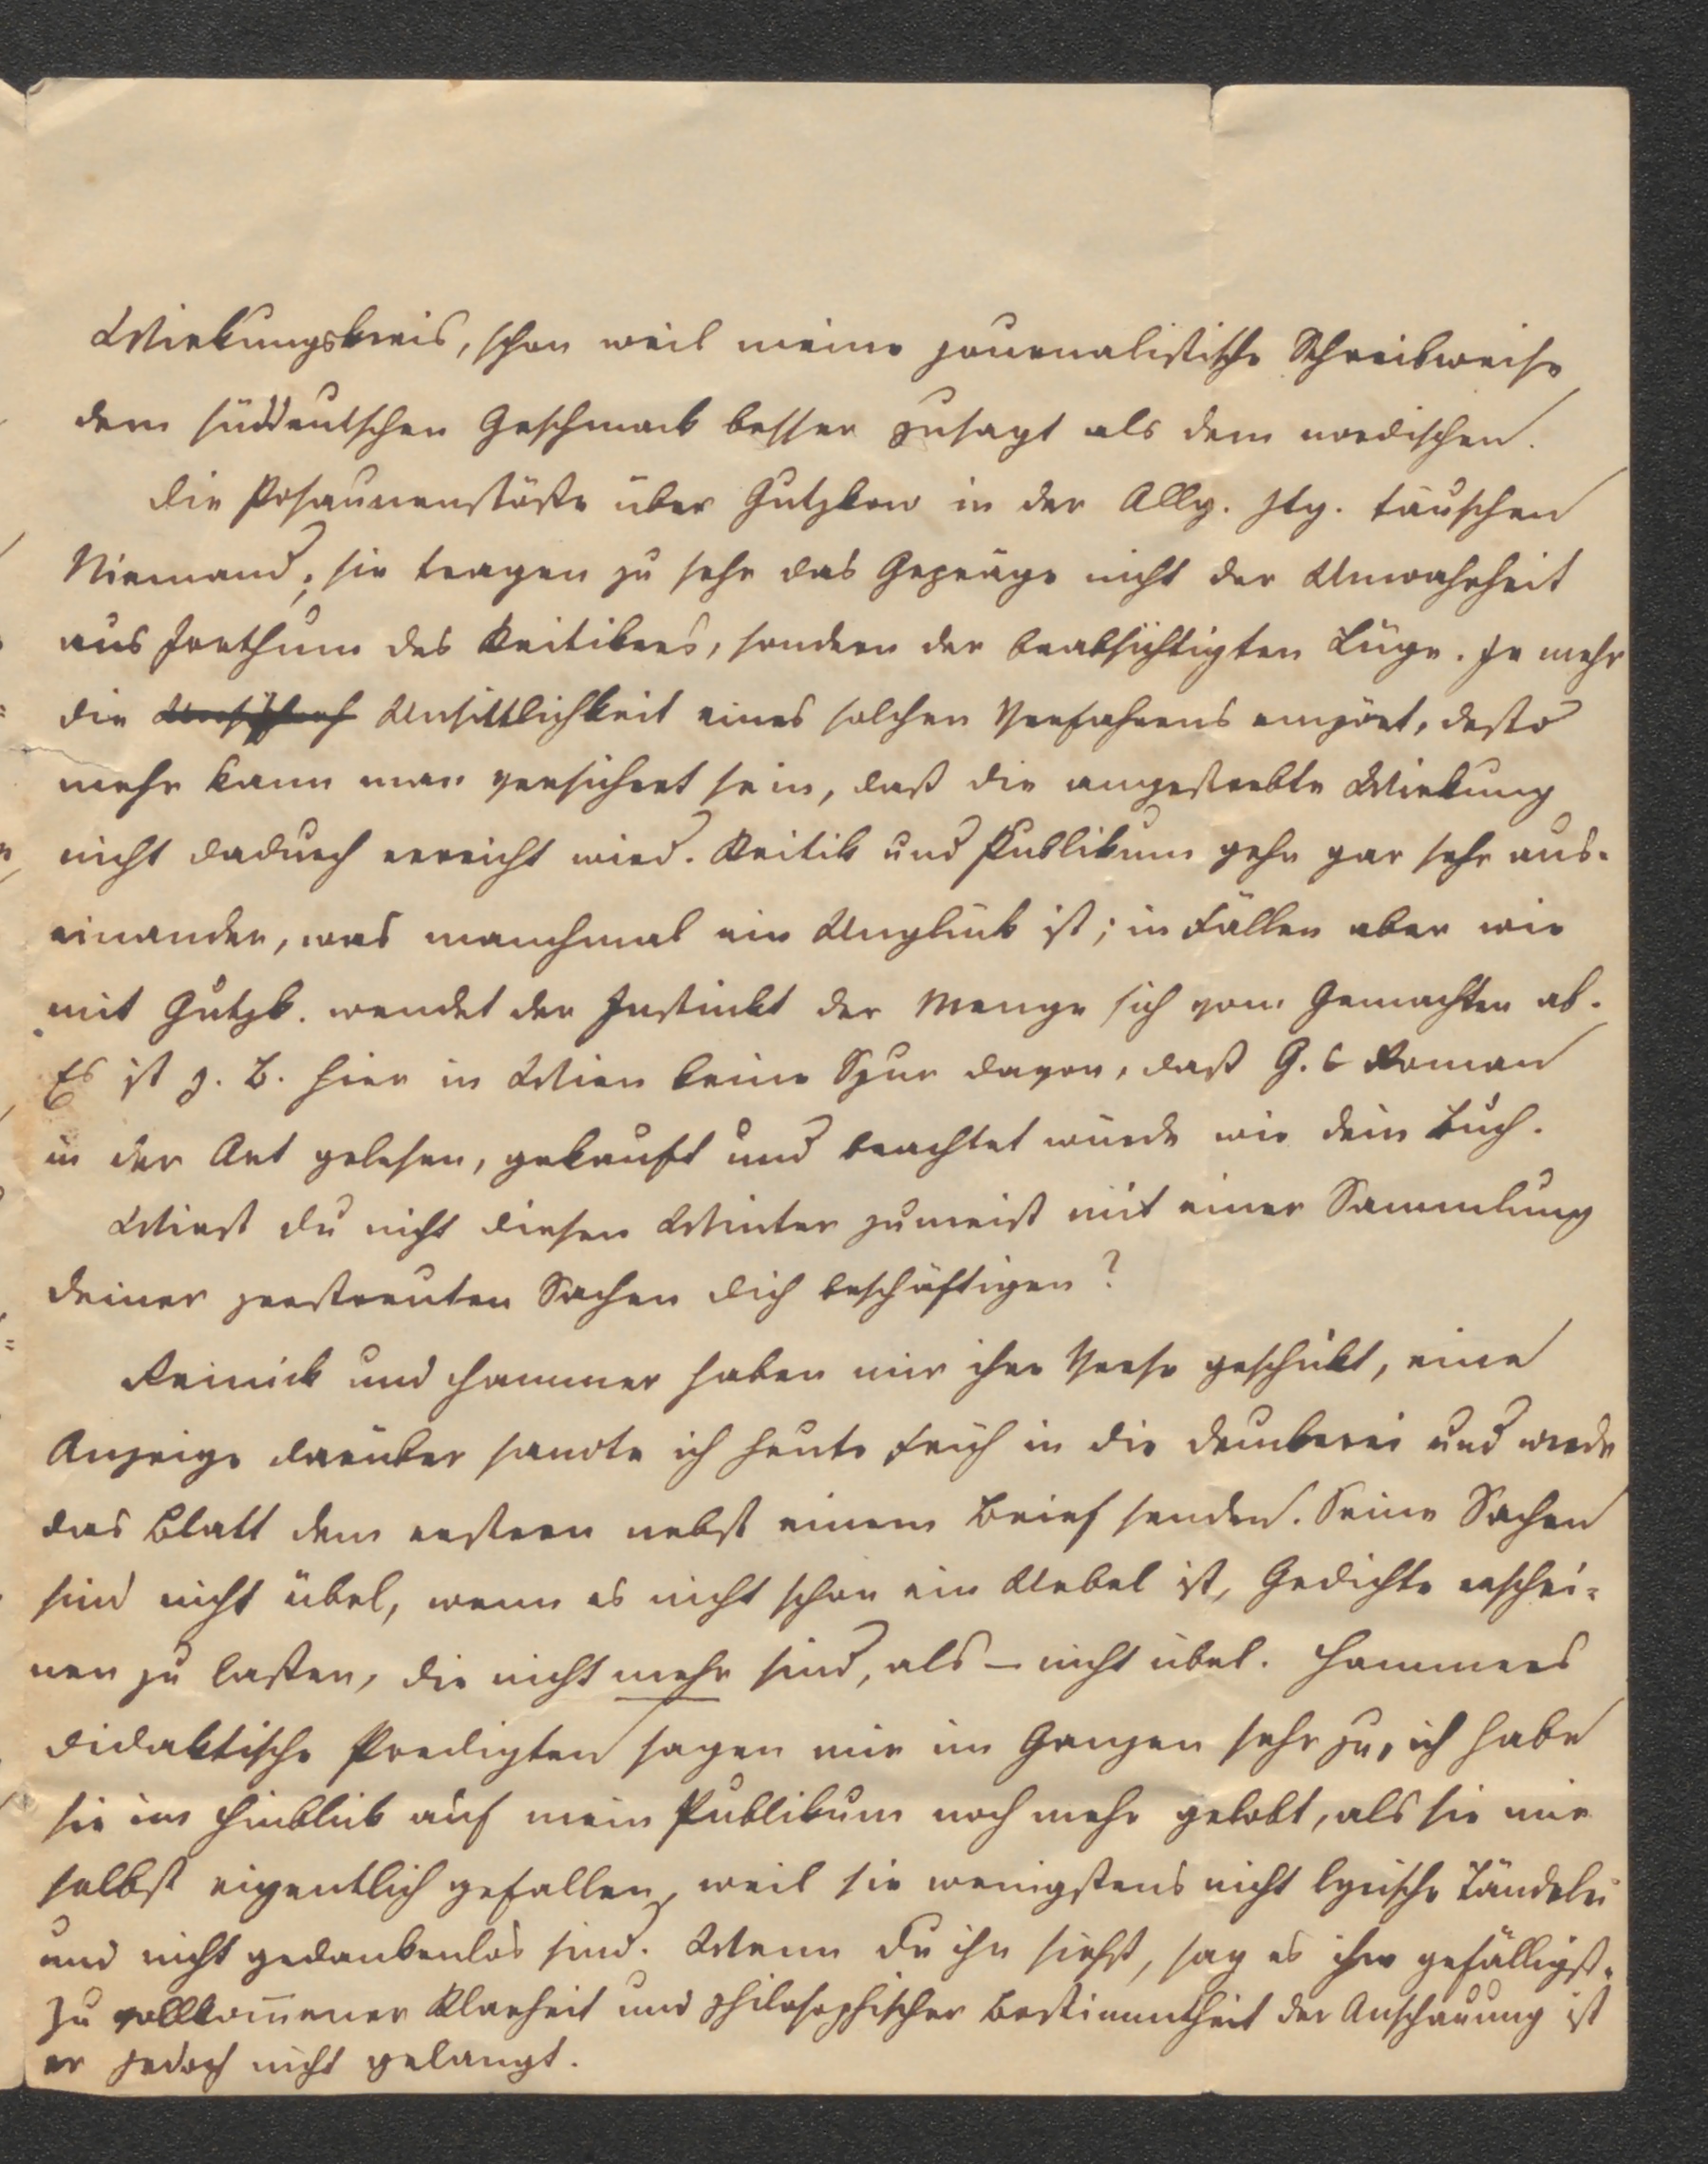 Wirkungskreis, schon weil meine journalistische Schreibweise
dem süddeutschen Geschmack besser zusagt als dem nordischen.
Die Posaunenstöße über Gutzkow in der Allg. Ztg. täuschen
Niemand; sie tragen zu sehr das Gepräge nicht der Unwahrheit
aus Irrthum des Kritikers, sondern der beabsichtigten Lüge. Je mehr
die Unsittlichkeit eines solchen Verfahrens empört, desto
mehr kann man versichert sein, daß die angestrebte Wirkung
nicht dadurch erreicht wird. Kritik und Publikum gehn gar sehr aus-
einander, was manchmal ein Unglück ist; in Fällen aber wie
mit Gutzk. wendet der Instinkt der Menge sich vom Gemachten ab.
Es ist z. B. hier in Wien keine Spur davon, daß G.s Roman
in der Art gelesen, gekauft und beachtet würde wie dein Buch.
Wirst du nicht diesen Winter zumeist mit einer Sammlung
deiner zerstreuten Sachen dich beschäftigen?
Reinick und Hammer haben mir ihre Verse geschickt, eine
Anzeige darüber sandte ich heute früh in die Druckerei und werde
das Blatt dem erstern nebst einem Brief senden. Seine Sachen
sind nicht übel, wenn es nicht schon ein Uebel ist, Gedichte erschei-
nen zu laßen, die nicht mehr sind, als – nicht übel. Hammers
didaktische Predigten sagen mir im Ganzen sehr zu, ich habe
sie im Hinblick auf mein Publikum noch mehr gelobt, als sie mir
selbst eigentlich gefallen, weil sie wenigstens nicht lyrische Tändelei
und nicht gedankenlos sind. Wenn du ihn siehst, sag es ihm gefälligst.
Zu vollkom̅ener Klarheit und philosophischer Bestimmtheit der Anschauung ist
er jedoch nicht gelangt.